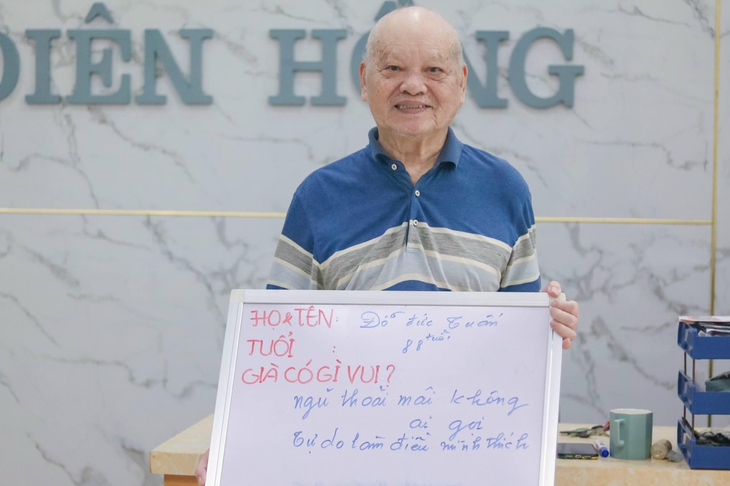 DIÊN HỒNG
HỌ & TÊN: Đỗ đức Tuấn
TUỔI : 88 tuổi
GIÀ CÓ GÌ VUI?
ngủ thoải mái không
ai gọi
Tự do làm điều mình thích